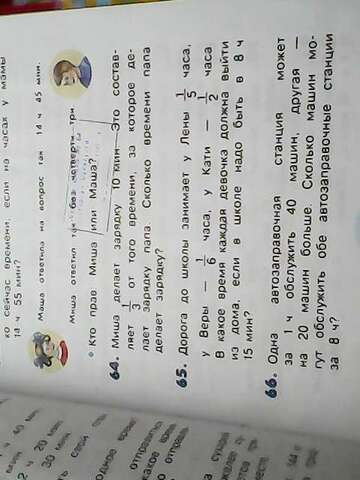 ко сейчас времени, если на часах у мамы
14 ч 55 мин?
Маша ответила на вопрос так: 14 ч 45 мин.
Миша ответил так: без четверти три.
• Кто прав: Миша или Маша?
64. Миша делает зарядку 10 мин. Это состав-
ляет 1/3 от того времени, за которое де-
лает зарядку папа. Сколько времени папа
делает зарядку?
65. Дорога до школы занимает у Лены 1/5 часа,
у Веры — 1/6 часа, у Кати — 1/2 часа
В какое время каждая девочка должна выйти
из дома, если в школе надо быть в 8 ч
15 мин?
66. Одна автозаправочная станция может
за 1 ч обслужить 40 машин, другая —
на 20 машин больше. Сколько машин мо-
гут обслужить обе автозаправочные станции
за 8 ч?
ч 40 мин
2 ч 20 мин
30 мин